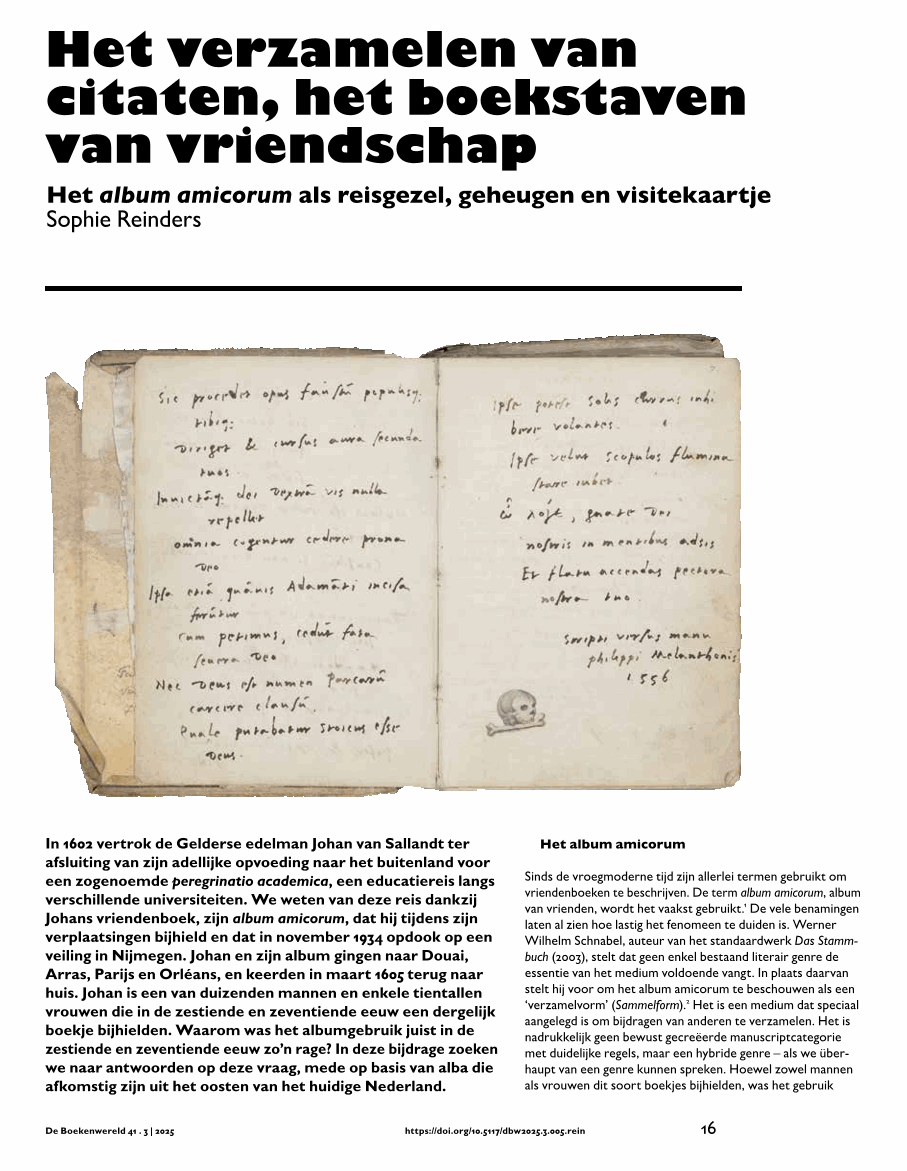 Het verzamelen van
citaten, het boekstaven
van vriendschap
Het album amicorum als reisgezel, geheugen en visitekaartje
Sophie Reinders
Sic procedet opus faustũ populusq;
tibiq;
Diriget & cursus aura secunda
tuos.
Inuictãq; dei dextrã vis nulla
repellet
omnia coguntur cedere prona
Deo
Ipsa etiã quãuis Adamãti incisa
ferũtur
Cum petimus, cedũt fata
seuera Deo
Nec Deus est numen Parcarũ
carcere clausũ,
Quale putabatur Stoicus esse
Deus.
Ipse potest Solis currus inhi
bere volantes.
Ipse velut scopulos flumina
stare iubet
ὦ λόγε, gnate Dei
nostris in mentibus adsis
Et flatu accendas pectora
nostra tuo.
Scripti versus manu
philippi Melanthonis
1556
In 1602 vertrok de Gelderse edelman Johan van Sallandt ter
afsluiting van zijn adellijke opvoeding naar het buitenland voor
een zogenoemde peregrinatio academica, een educatiereis langs
verschillende universiteiten. We weten van deze reis dankzij
Johans vriendenboek, zijn album amicorum, dat hij tijdens zijn
verplaatsingen bijhield en dat in november 1934 opdook op een
veiling in Nijmegen. Johan en zijn album gingen naar Douai,
Arras, Parijs en Orléans, en keerden in maart 1605 terug naar
huis. Johan is een van duizenden mannen en enkele tientallen
vrouwen die in de zestiende en zeventiende eeuw een dergelijk
boekje bijhielden. Waarom was het albumgebruik juist in de
zestiende en zeventiende eeuw zo’n rage? In deze bijdrage zoeken
we naar antwoorden op deze vraag, mede op basis van alba die
afkomstig zijn uit het oosten van het huidige Nederland.
Het album amicorum
Sinds de vroegmoderne tijd zijn allerlei termen gebruikt om
vriendenboeken te beschrijven. De term album amicorum, album
van vrienden, wordt het vaakst gebruikt.¹ De vele benamingen
laten al zien hoe lastig het fenomeen te duiden is. Werner
Wilhelm Schnabel, auteur van het standaardwerk Das Stamm-
buch (2003), stelt dat geen enkel bestaand literair genre de
essentie van het medium voldoende vangt. In plaats daarvan
stelt hij voor om het album amicorum te beschouwen als een
‘verzamelvorm’ (Sammelform).² Het is een medium dat speciaal
aangelegd is om bijdragen van anderen te verzamelen. Het is
nadrukkelijk geen bewust gecreëerde manuscriptcategorie
met duidelijke regels, maar een hybride genre – als we über-
haupt van een genre kunnen spreken. Hoewel zowel mannen
als vrouwen dit soort boekjes bijhielden, was het gebruik
De Boekenwereld 41 . 3 | 2025
https://doi.org/10.5117/dbw2025.3.005.rein
16